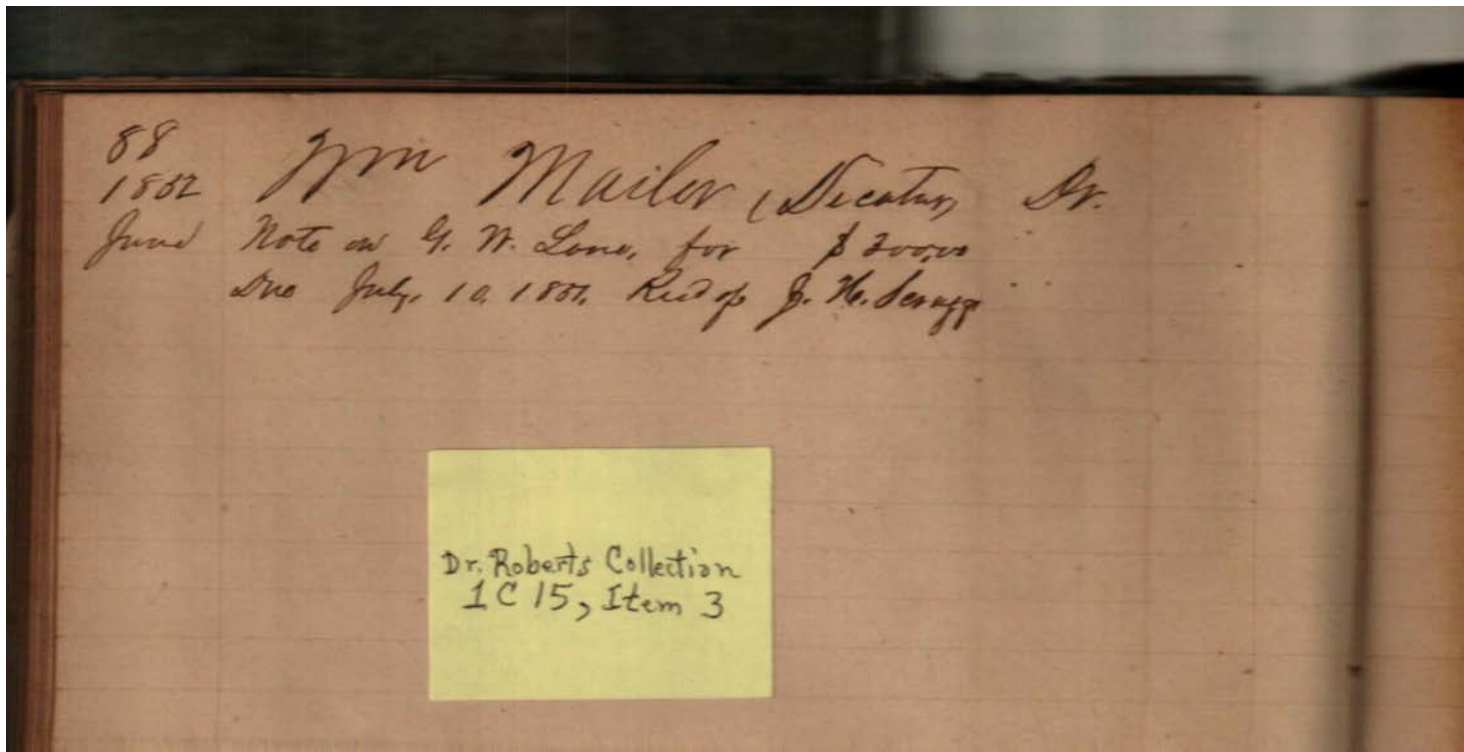 88
1862 Wm Mailer, (Decatur) Dr.
June Note on G. W. Lane, for $200,00
Due July, 10, 1861, Recd of J. H. Scruggs
Dr. Roberts Collection
1C15, Item 3